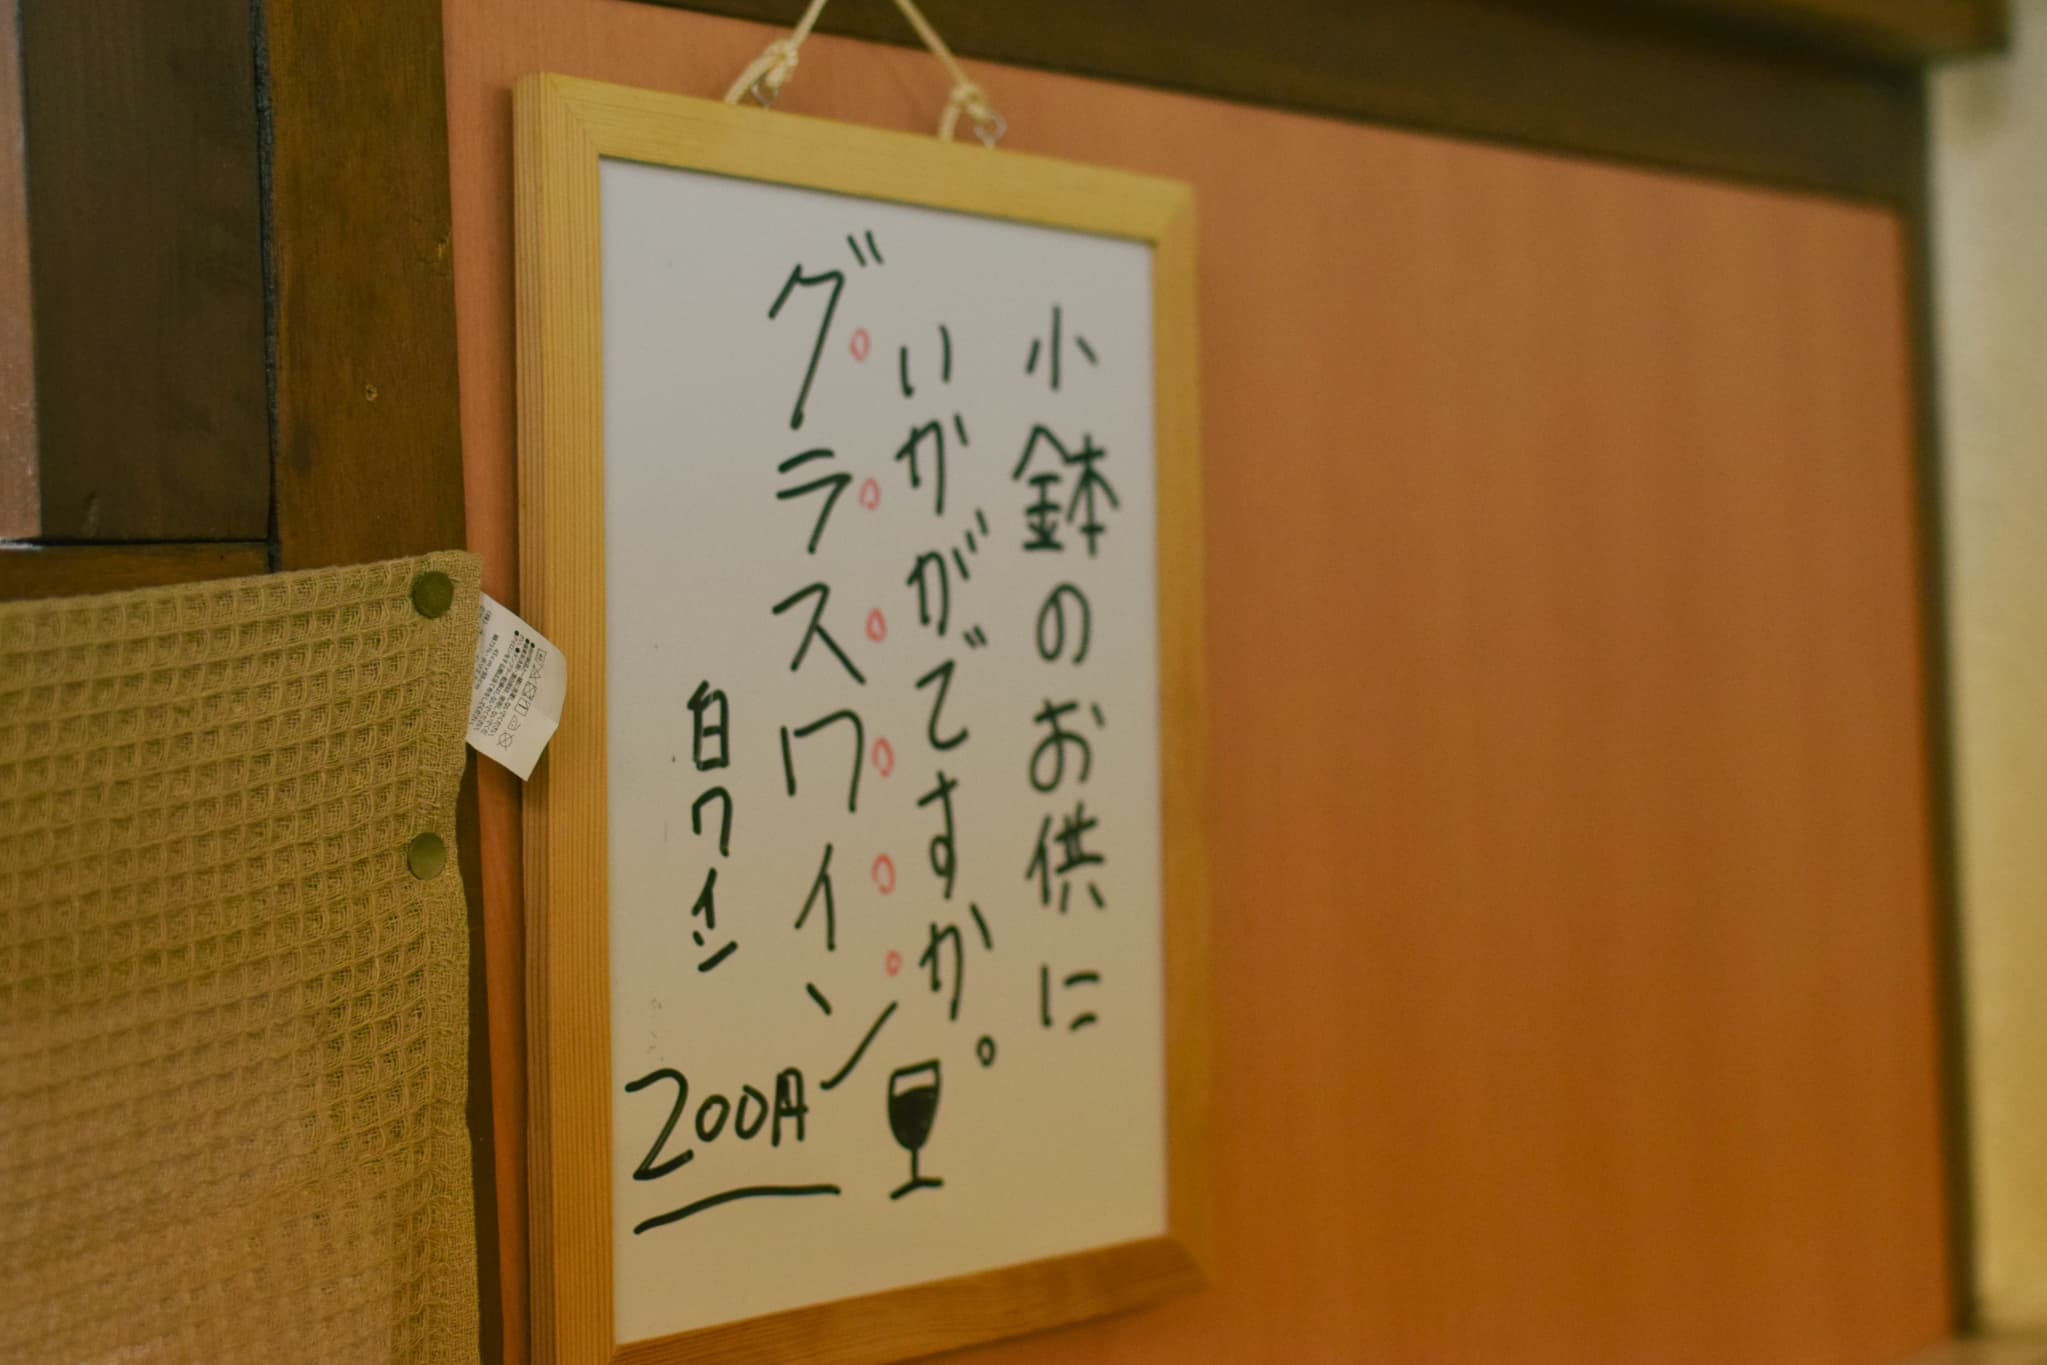 小鉢のお供に
いかがですか。
グラスワイン
白ワイン
200円